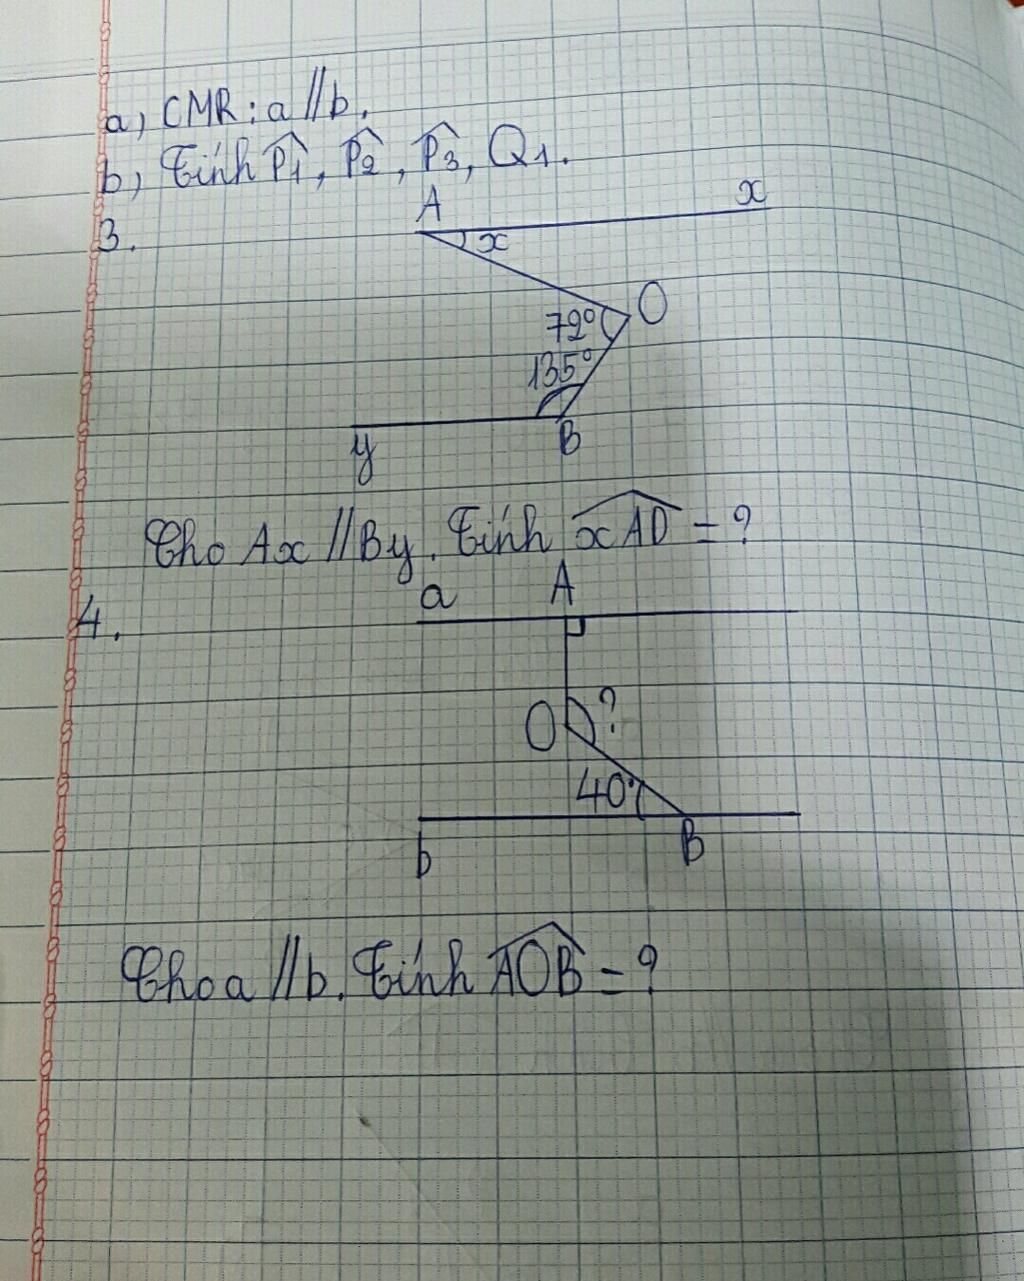 a, CMR: a // b.
b, Tính P̂1, P̂2, P̂3, Q1.
3.
A
x
x
O
72°
135°
y
B
Cho Ax // By. Tính xAO = ?
4.
a
A
O
?
40°
b
B
Cho a // b. Tính AOB = ?